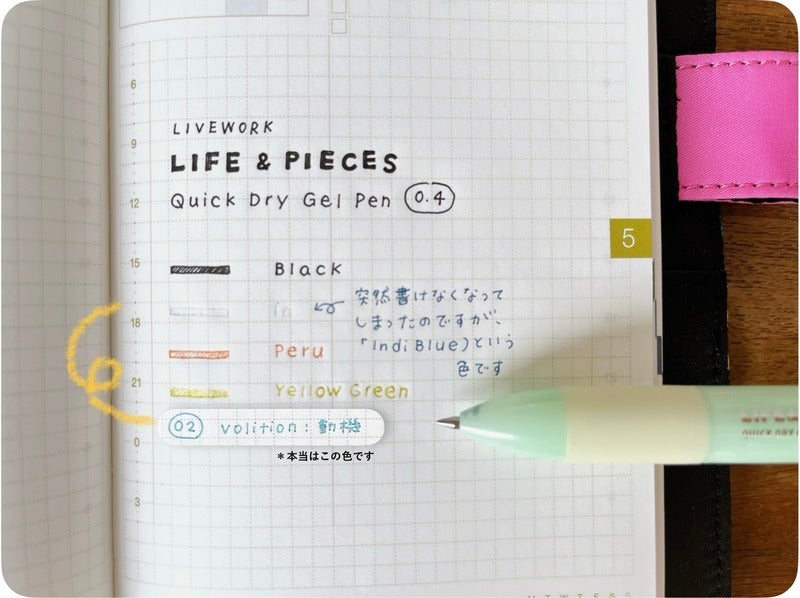 6
LIVEWORK
9
LIFE & PIECES
12
Quick Dry Gel Pen 0.4
5
15
Black
In
突然書けなくなって
18
しまったのですが、
「IndiBlue」という
Peru
色です
21
Yellow Green
02 volition: 動機
0
*本当はこの色です
3
M T W T F S S